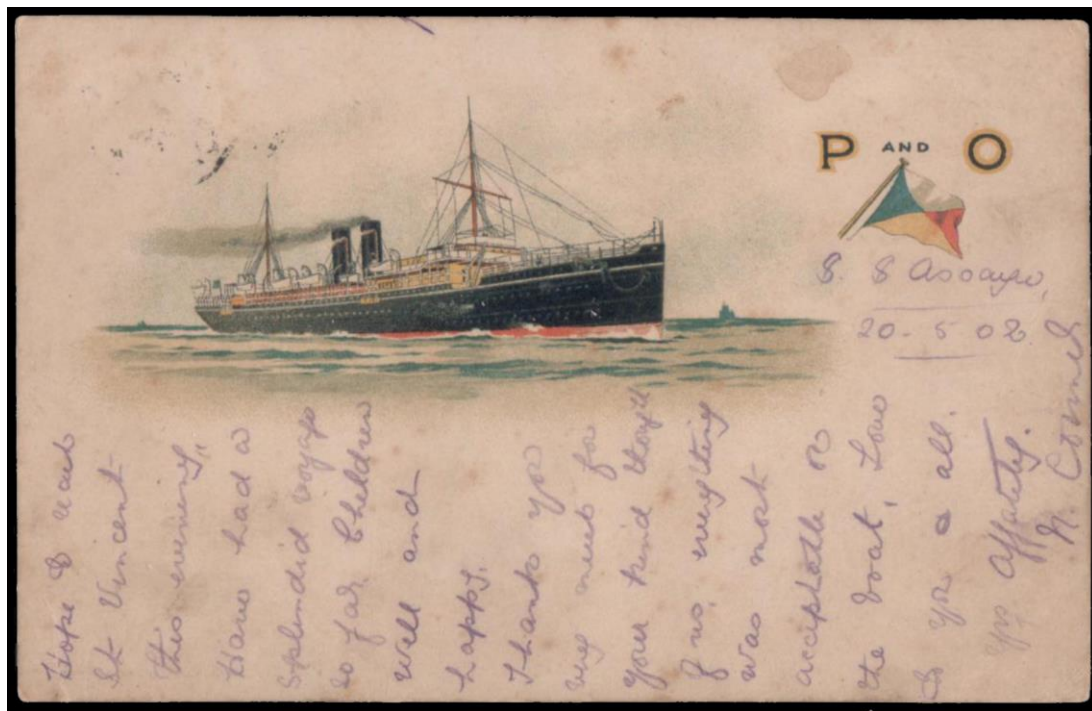 P AND O
S. S Assaye,
20-5 02
Hope to reach
St Vincent
this evening,
Have had a
splendid voyage
so far. Children
well and
happy.
Thank you
very much for
your kind thought
of us, everything
was most
acceptable on
the boat, Love
to you all.
Yrs Affctly.